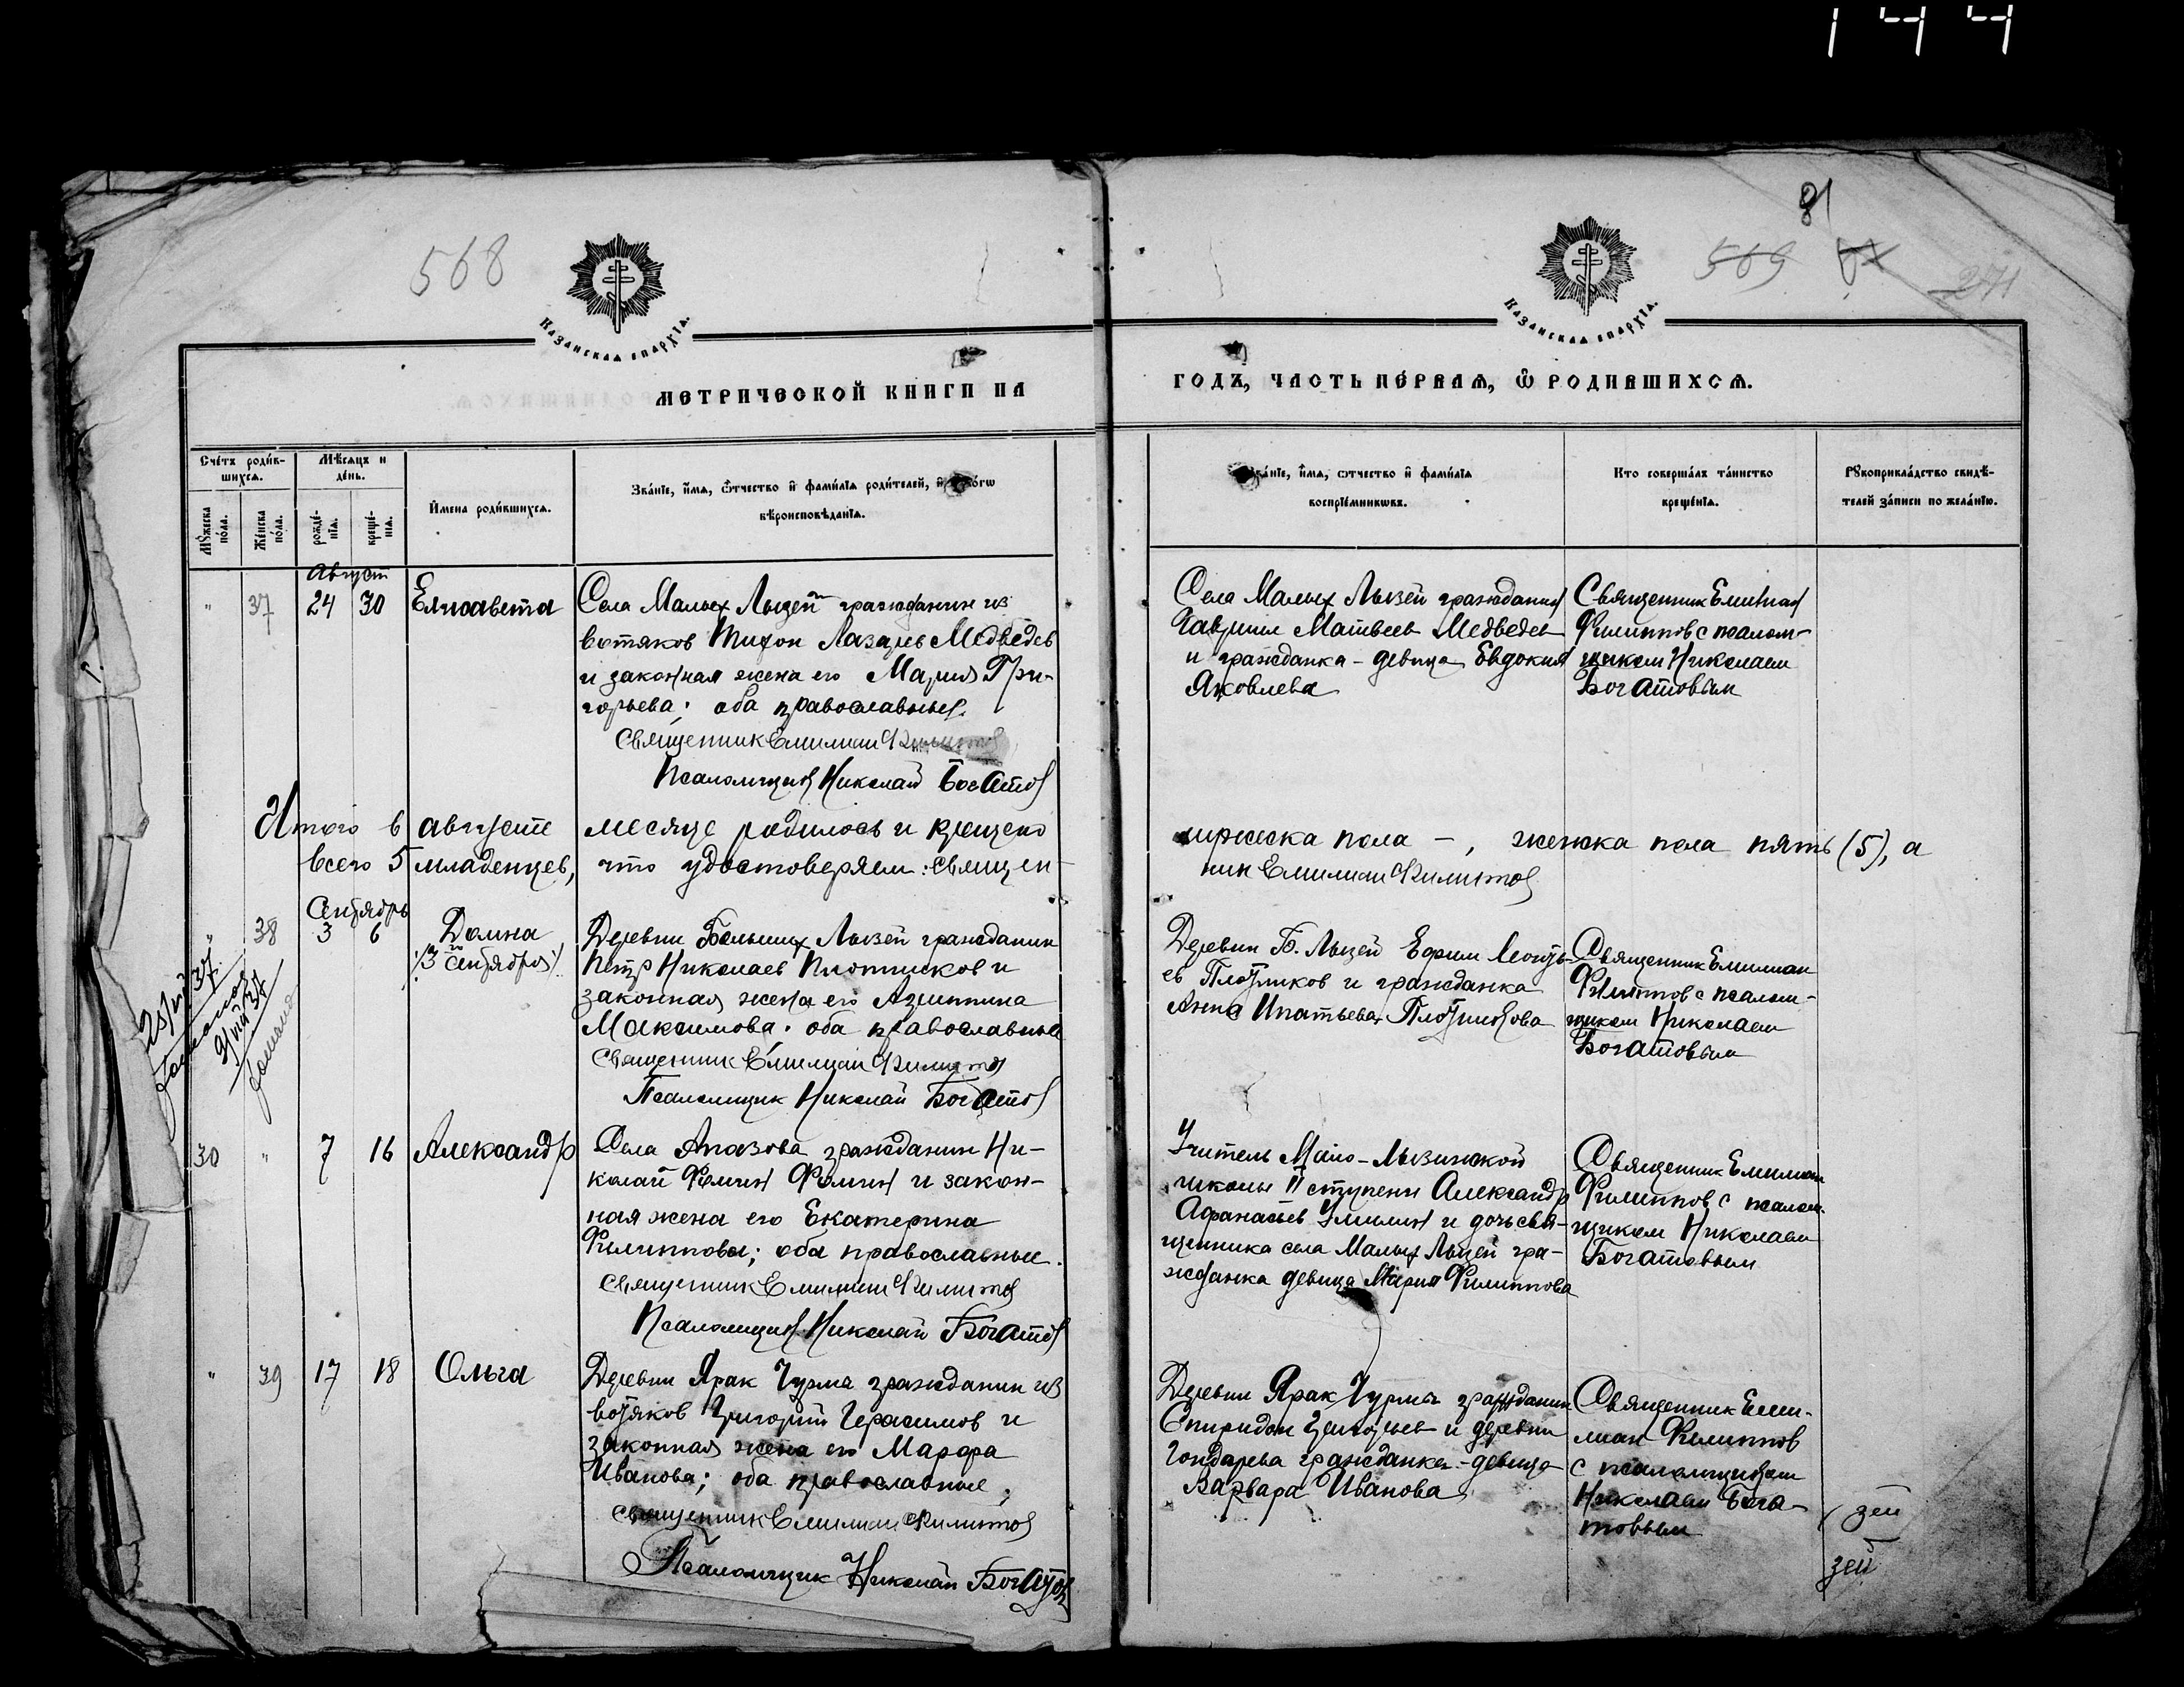 144
81
568
569
241
Казанская епархїа.
Казанская епархїа.
МЕТРИЧЕСКОЙ КНИГИ НА
ГОДЪ, ЧАСТЬ ПЕРВАЯ, Ѿ РОДИВШИХСЯ.
Счетъ родив-
шихся.
Мѣсяцъ и
день.
Мужеска
пола.
Женска
пола.
рожде-
нїя.
креще-
нїя.
Имена родившихся.
Званїе, имя, отчество и фамилїя родителей, и
вѣроисповѣданїя.
Званїе, имя, отчество и фамилїя
воспрїемниковъ.
Кто совершалъ таинство
крещенїя.
Рукоприкладство свидѣ-
телей записи по желанїю.
Август
" 37 24 30 Елисавета
Села Малых Лызей гражданин из
вотяков Тихон Лазарев Медведев
и законная жена его Мария Гри-
горьева; оба православные.
Священник Емилиан Филиппов
Псаломщик Николай Богатов
Села Малых Лызей гражданин
Гавриил Матвеев Медведев
и гражданка - девица Евдокия
Яковлева
Священник Емилиан
Филиппов с псалом-
щиком Николаем
Богатовым
Итого в августе месяце родилось и крещено мужеска пола -, женска пола пять (5), а
всего 5 младенцев, что удостоверяем: священ-
ник Емилиан Филиппов
Сентябрь
" 38 3 6 Домна
(3 сентября)
Деревни Больших Лызей гражданин
Петр Николаев Плотников и
законная жена его Агрипина
Максимова; оба православные
Священник Емилиан Филиппов
Псаломщик Николай Богатов
Деревни Б. Лызей Ефрем Леонть-
ев Плотников и гражданка
Анна Игнатьева Плотникова
Священник Емилиан
Филиппов с псалом-
щиком Николаем
Богатовым
30 " 7 16 Александр
Села Апазова гражданин Ни-
колай Фомин Фомин и закон-
ная жена его Екатерина
Филиппова; оба православные.
Священник Емилиан Филиппов
Псаломщик Николай Богатов
Учитель Мало-Лызинской
школы II ступени Александр
Афанасьев и дочь свя-
щенника села Малых Лызей гра-
жданка девица Мария Филиппова
Священник Емилиан
Филиппов с псалом-
щиком Николаем
Богатовым
" 39 17 18 Ольга
Деревни Ярак Чурма гражданин из
вотяков Григорий Герасимов и
законная жена его Марфа
Иванова; оба православные;
Священник Емилиан Филиппов
Псаломщик Николай Богатов
Деревни Ярак Чурма гражданин
Спиридон Григорьев и деревни
Гондырева гражданка - девица
Варвара Иванова
Священник Еми-
лиан Филиппов
с псаломщиком
Николаем Бога-
товым
зей
зей